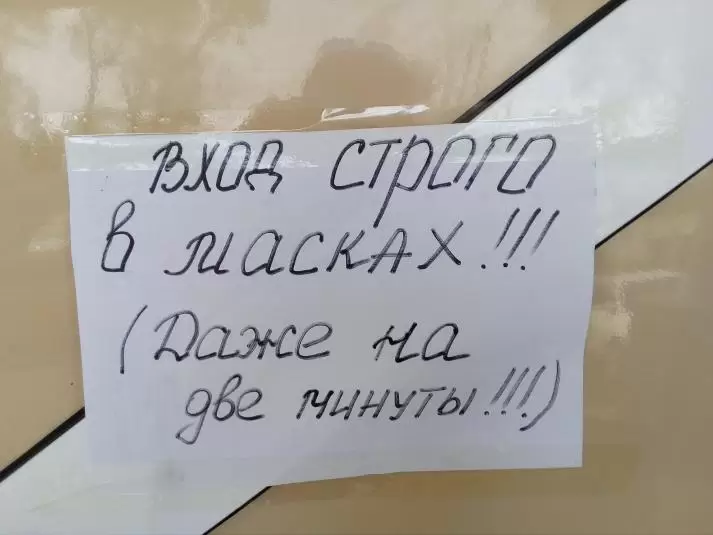 вход строго
в масках!!!
(Даже на
две минуты!!!)